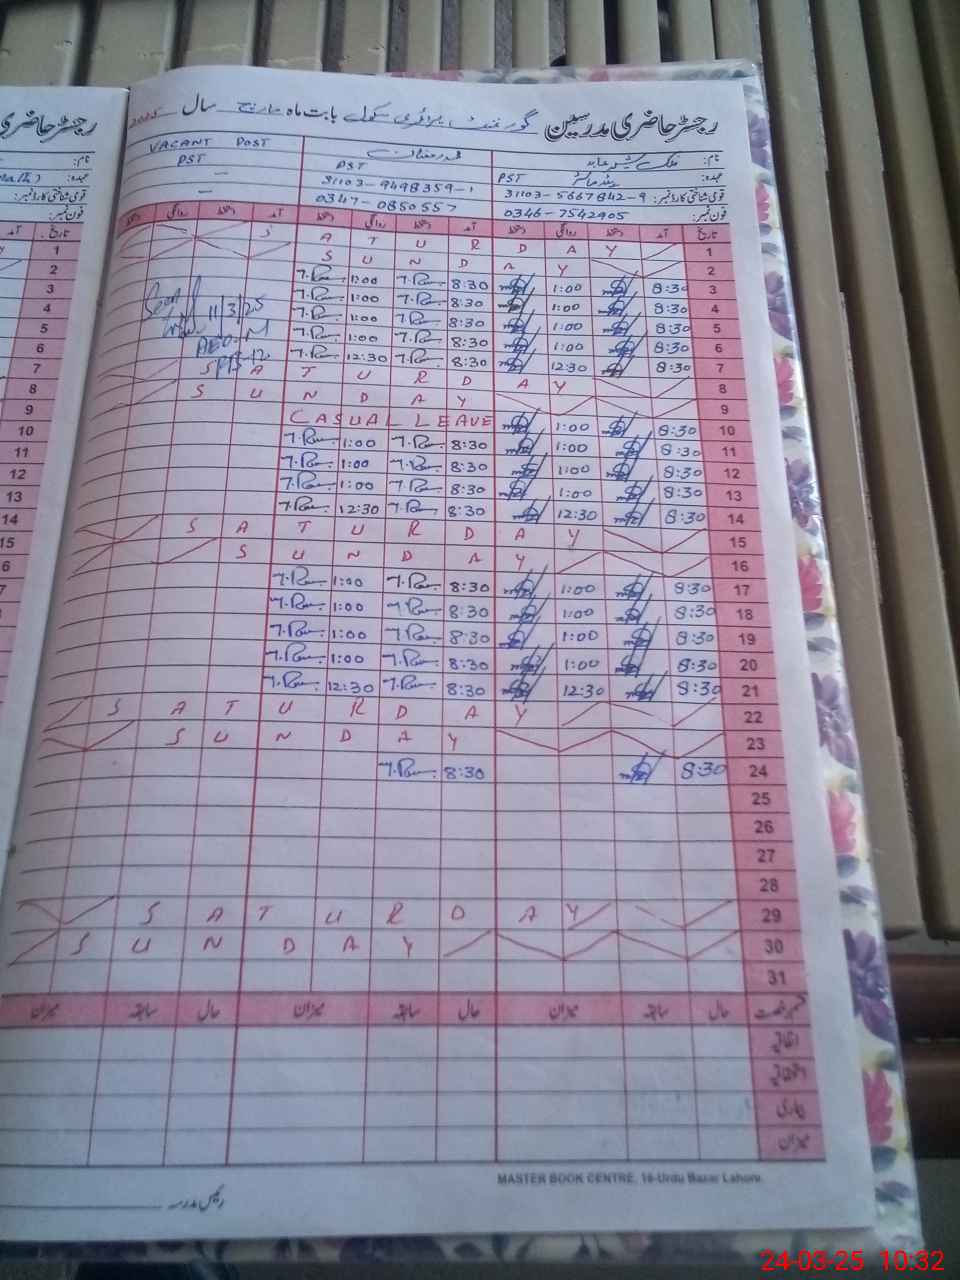 رجسٹر حاضری مدرسین گورنمنٹ پرائمری سکول بابت ماہ مارچ سال 2025
نام:
VACANT POST
عہدہ: PST PST PST
قومی شناختی کارڈ نمبر: 31103-5667842-9 31103-9498359-1 —
فون نمبر: 0346-7542905 0347-0850557 —
تاریخ آمد دستخط روانگی دستخط آمد دستخط روانگی دستخط آمد دستخط روانگی دستخط
1 SATURDAY
2 SUNDAY
3 8:30 1:00 8:30 1:00
4 8:30 1:00 8:30 1:00
5 8:30 1:00 8:30 1:00
6 8:30 1:00 8:30 1:00
7 8:30 12:30 8:30 12:30
11/3/25
8 SATURDAY
9 SUNDAY
10 8:30 1:00 CASUAL LEAVE
11 8:30 1:00 8:30 1:00
12 8:30 1:00 8:30 1:00
13 8:30 1:00 8:30 1:00
14 8:30 12:30 8:30 12:30
15 SATURDAY
16 SUNDAY
17 8:30 1:00 8:30 1:00
18 8:30 1:00 8:30 1:00
19 8:30 1:00 8:30 1:00
20 8:30 1:00 8:30 1:00
21 8:30 12:30 8:30 12:30
22 SATURDAY
23 SUNDAY
24 8:30 8:30
25
26
27
28
29 SATURDAY
30 SUNDAY
31
حال سابقہ میزان حال سابقہ میزان حال سابقہ میزان
اتفاقیہ
بیماری
میزان
MASTER BOOK CENTRE, 16-Urdu Bazar Lahore.
رئیس مدرسہ
24-03-25 10:32